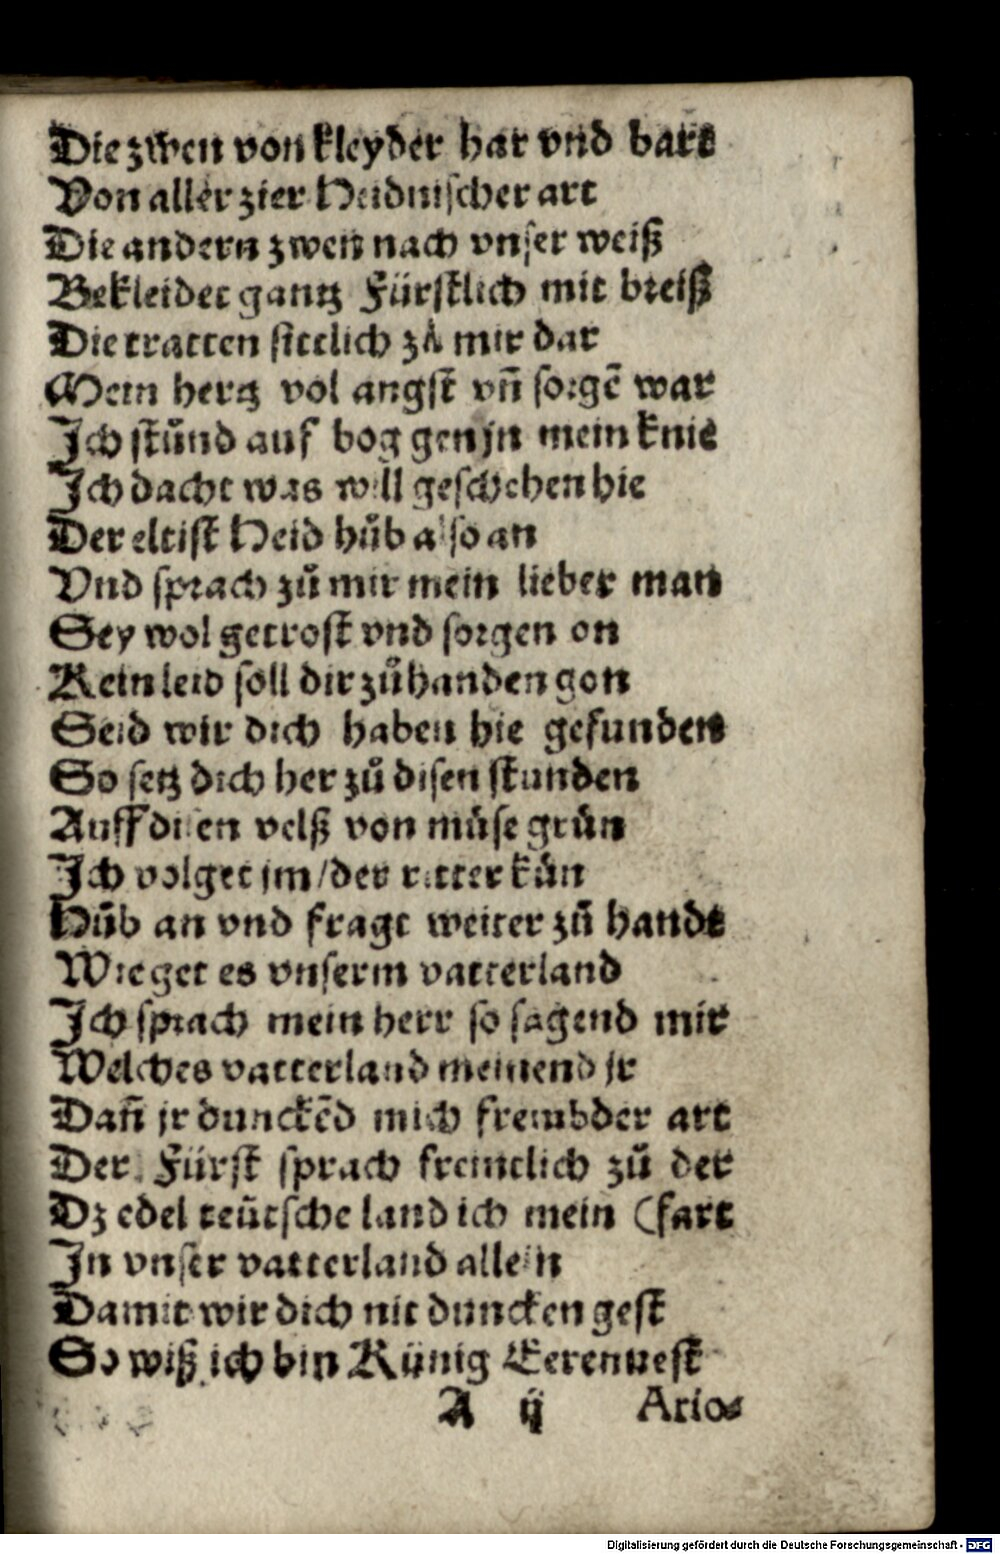 Die zwen von kleyder har vnd bart
Von aller zier Heidnischer art
Die andern zwen nach vnser weiß
Bekleidet gantz Fürstlich mit breiß
Die tratten sittlich zů mir dar
Mein hertz vol angst vñ sorgẽ war
Ich stůnd auf bog gen jn mein knie
Ich dacht was will geschehen hie
Der eltist Heid hůb also an
Vnd sprach zů mir mein lieber man
Sey wol getrost vnd sorgen on
Kein leid soll dir zůhanden gon
Seid wir dich haben hie gefunden
So setz dich her zů disen stunden
Auff disen velß von můse grůn
Ich volget jm / der ritter kůn
Hůb an vnd fragt weiter zů handt
Wie get es vnserm vatterland
Ich sprach mein herr so sagend mir
Welches vatterland meinend jr
Dañ jr dunckẽd mich frembder art
Der Fürst sprach freintlich zů der
Dz edel teütsche land ich mein (fart
In vnser vatterland allein
Damit wir dich nit duncken gest
So wiß ich bin Künig Eerenuest
A ij Ario⸗
Digitalisierung gefördert durch die Deutsche Forschungsgemeinschaft - DFG